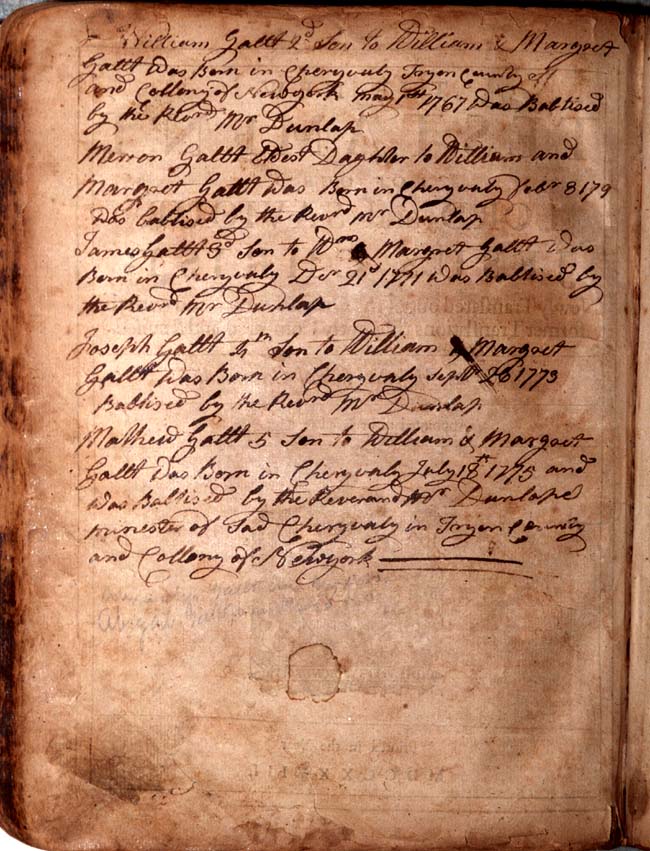 William Gallt 2d Son to William & Margret
Gallt was Born in Cheryvaly Tryon County
and Collony of Newyork may 1st 1767 was Babtised
by the Revrd Mr Dunlap
Merron Gallt Eldest Daghter to William and
Margret Gallt was Born in Cheryvaly Febr 8 179
was babtised by the Revrd Mr Dunlap
James Gallt 3d Son to Wm & Margret Gallt was
Born in Cheryvaly Dcr 21st 1771 was Babtised by
the Revrd Mr Dunlap
Joseph Gallt 4th Son to William & Margret
Gallt was Born in Cheryvaly Septr 26 1773
Babtised by the Revrd Mr Dunlap
Mathew Gallt 5 Son to William & Margret
Gallt was Born in Cheryvaly July 18th 1775 and
was Babtised by the Reverand Mr Dunlape
minester of Sad Cheryvaly in Tryon County
and Collony of Newyork